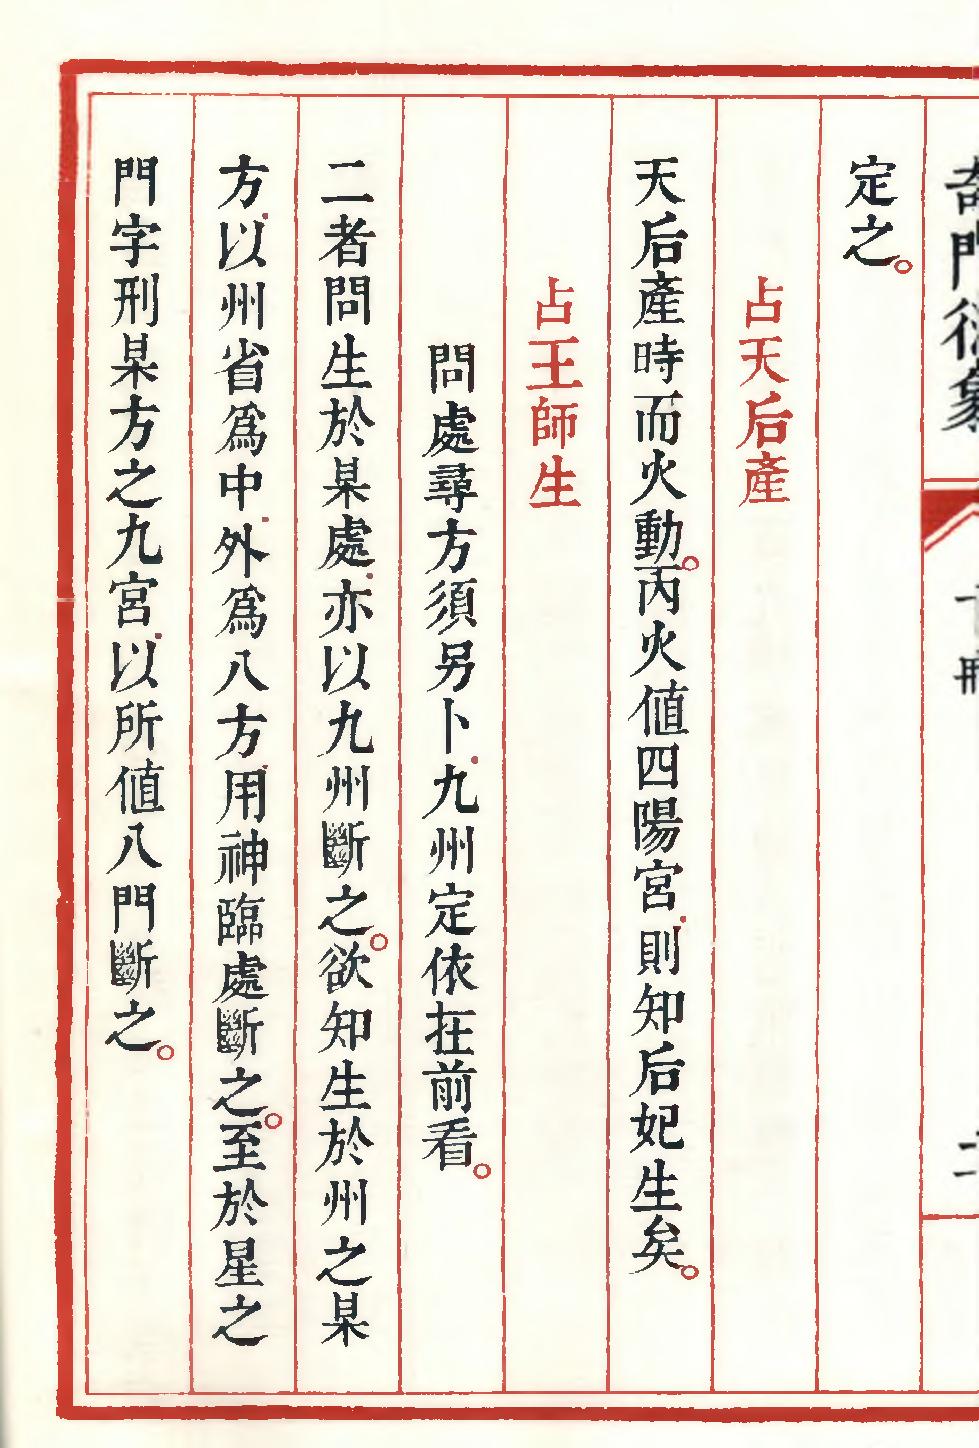 奇門衍象
定之。
占天后產
天后產時而火動。丙火值四陽宮、則知后妃生矣。
占王師生
問處尋方須另卜、九州定依在前看。
二者問生於某處、亦以九州斷之。欲知生於州之某
方、以州省爲中、外爲八方、用神臨處斷之。至於星之
門字刑某方之九宮、以所值八門斷之。